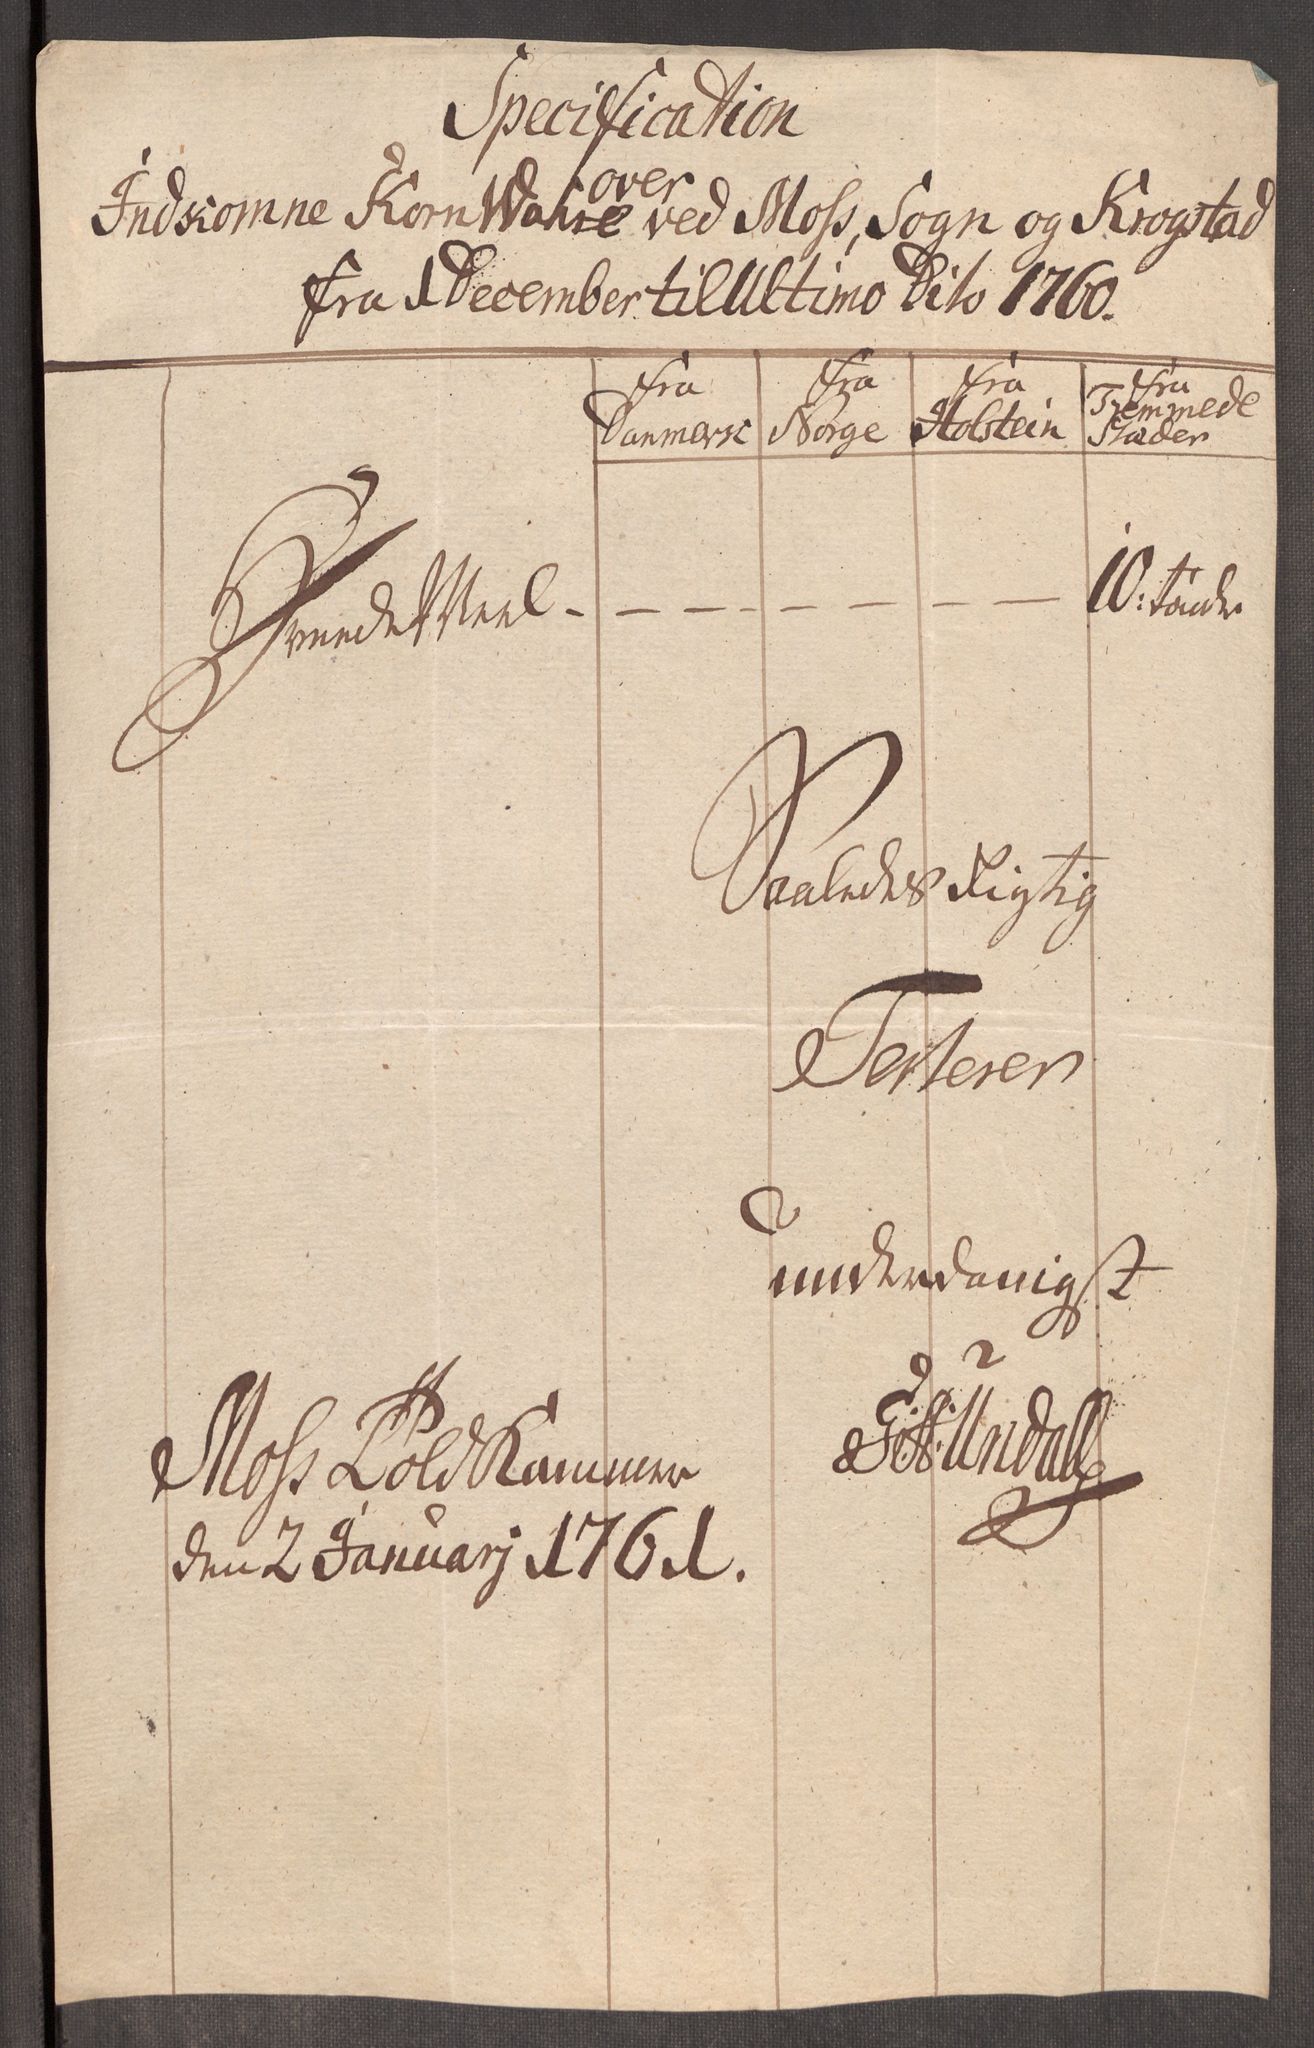 Specification
over
Indkomne Korn Wahre ved Moss, Sogn og Krogstad
fra 1 December til Ultimo Dito 1760.
fra Danmerk
fra Norge
fra Holstein
fra Fremmede Stæder
Hvede Meel - - - - - - - 10: tønder
Saaledes Rigtig
Testerer
underdanigst
Moss Told Kammer
den 2 Januarj 1761.
Undall